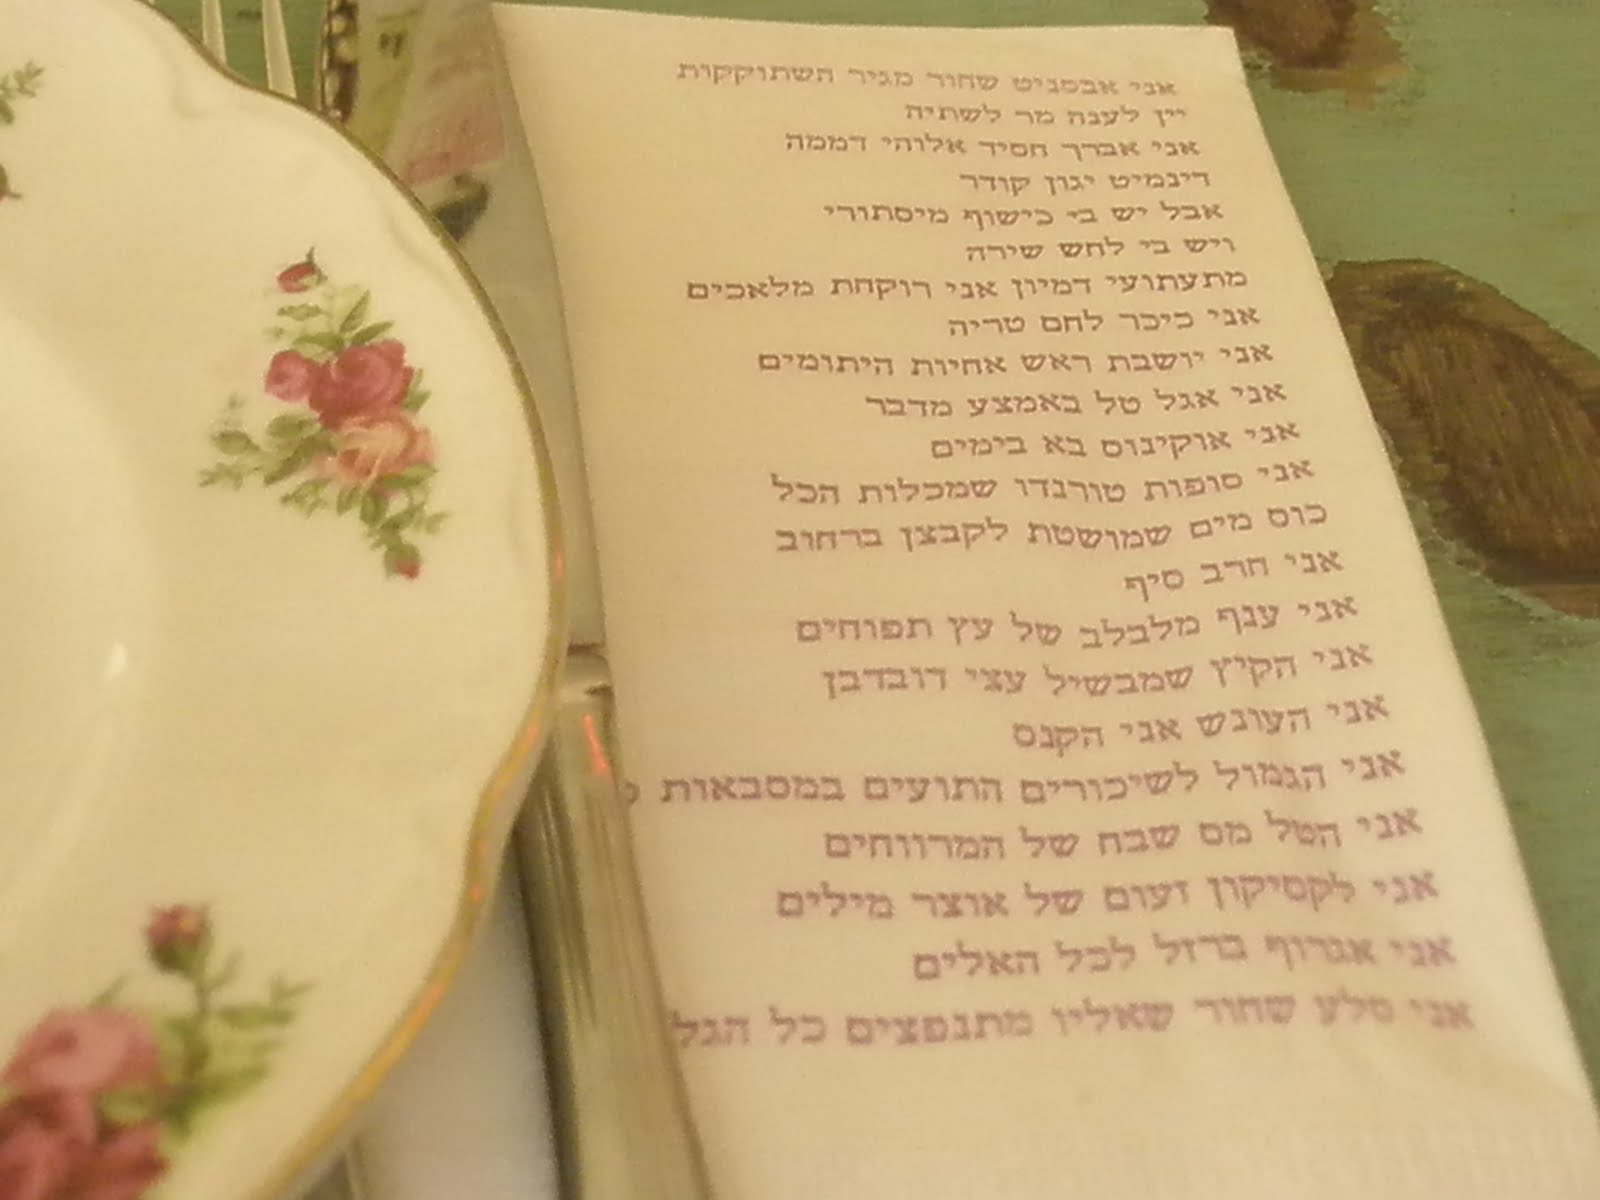 אני אבסניט שחור מגיר השתוקקות
יין לענה מר לשתיה
אני אברך חסיד אלוהי דממה
דינמיט יגון קודר
אבל יש בי כישוף מיסתורי
ויש בי לחש שירה
מתעתועי דמיון אני רוקחת מלאכים
אני כיכר לחם טריה
אני יושבת ראש אחיות היתומים
אני אגל טל באמצע מדבר
אני אוקינוס בא בימים
אני סופות טורנדו שמכלות הכל
כוס מים שמושטת לקבצן ברחוב
אני חרב סיף
אני ענף מלבלב של עץ תפוחים
אני הקיץ שמבשיל עצי דובדבן
אני העונש אני הקנס
אני הגמול לשיכורים התועים במסבאות
אני הטל מס שבח של המרווחים
אני לקסיקון זעום של אוצר מילים
אני אגרוף ברזל לכל האלים
אני סלע שחור שאליו מתנפצים כל הגל